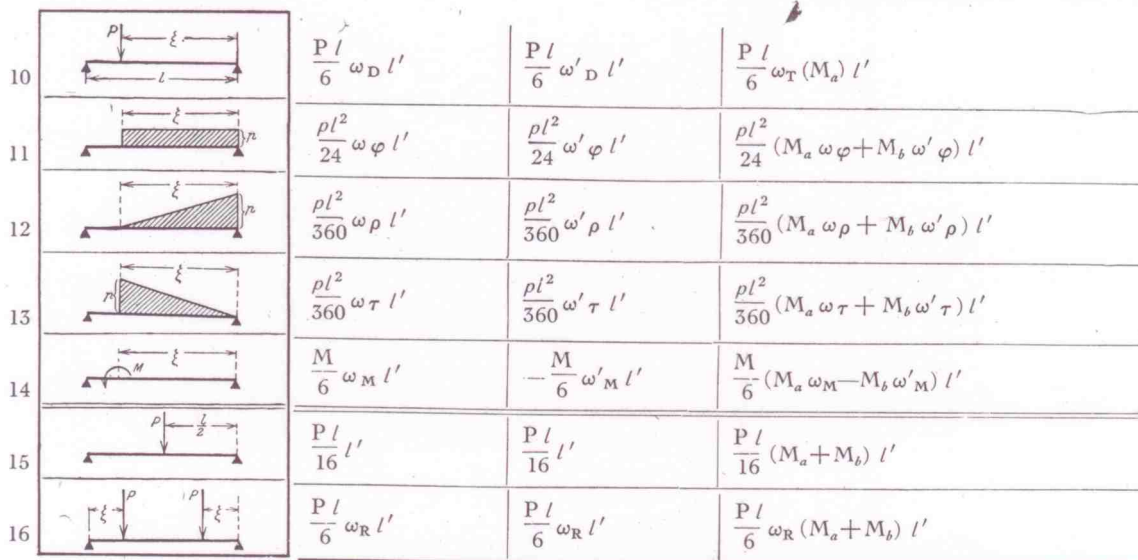 P ξ
l
10 P l/6 ω_D l′ P l/6 ω′_D l′ P l/6 ω_T (M_a) l′
ξ
p
11 pl²/24 ω φ l′ pl²/24 ω′ φ l′ pl²/24 (M_a ω φ + M_b ω′ φ) l′
ξ
p
12 pl²/360 ω ρ l′ pl²/360 ω′ ρ l′ pl²/360 (M_a ω ρ + M_b ω′ ρ) l′
ξ
p
13 pl²/360 ω τ l′ pl²/360 ω′ τ l′ pl²/360 (M_a ω τ + M_b ω′ τ) l′
M ξ
14 M/6 ω_M l′ —M/6 ω′_M l′ M/6 (M_a ω_M—M_b ω′_M) l′
P l/2
15 P l/16 l′ P l/16 l′ P l/16 (M_a+M_b) l′
ξ P P ξ
16 P l/6 ω_R l′ P l/6 ω_R l′ P l/6 ω_R (M_a+M_b) l′